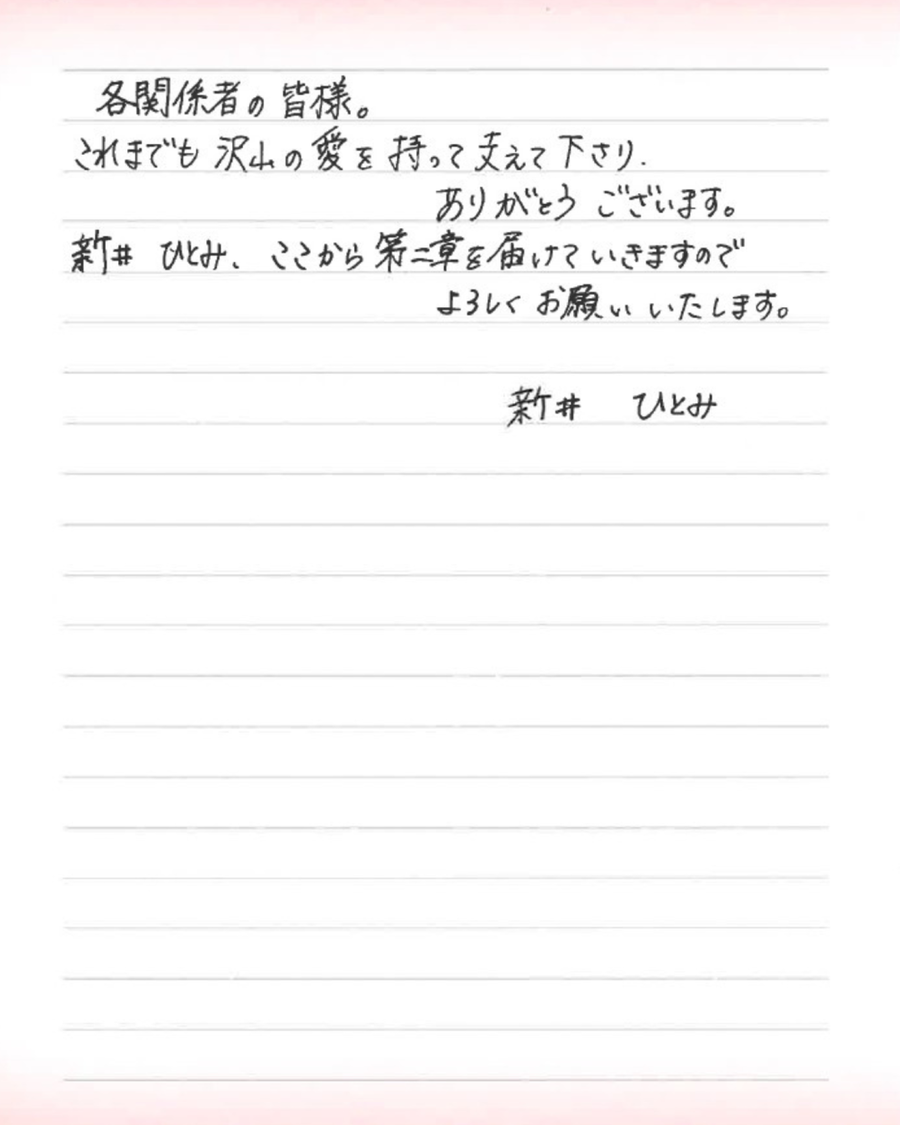 各関係者の皆様。
これまでも沢山の愛を持って支えて下さり、
ありがとうございます。
新井ひとみ、ここから第二章を届けていきますので
よろしくお願いいたします。
新井 ひとみ